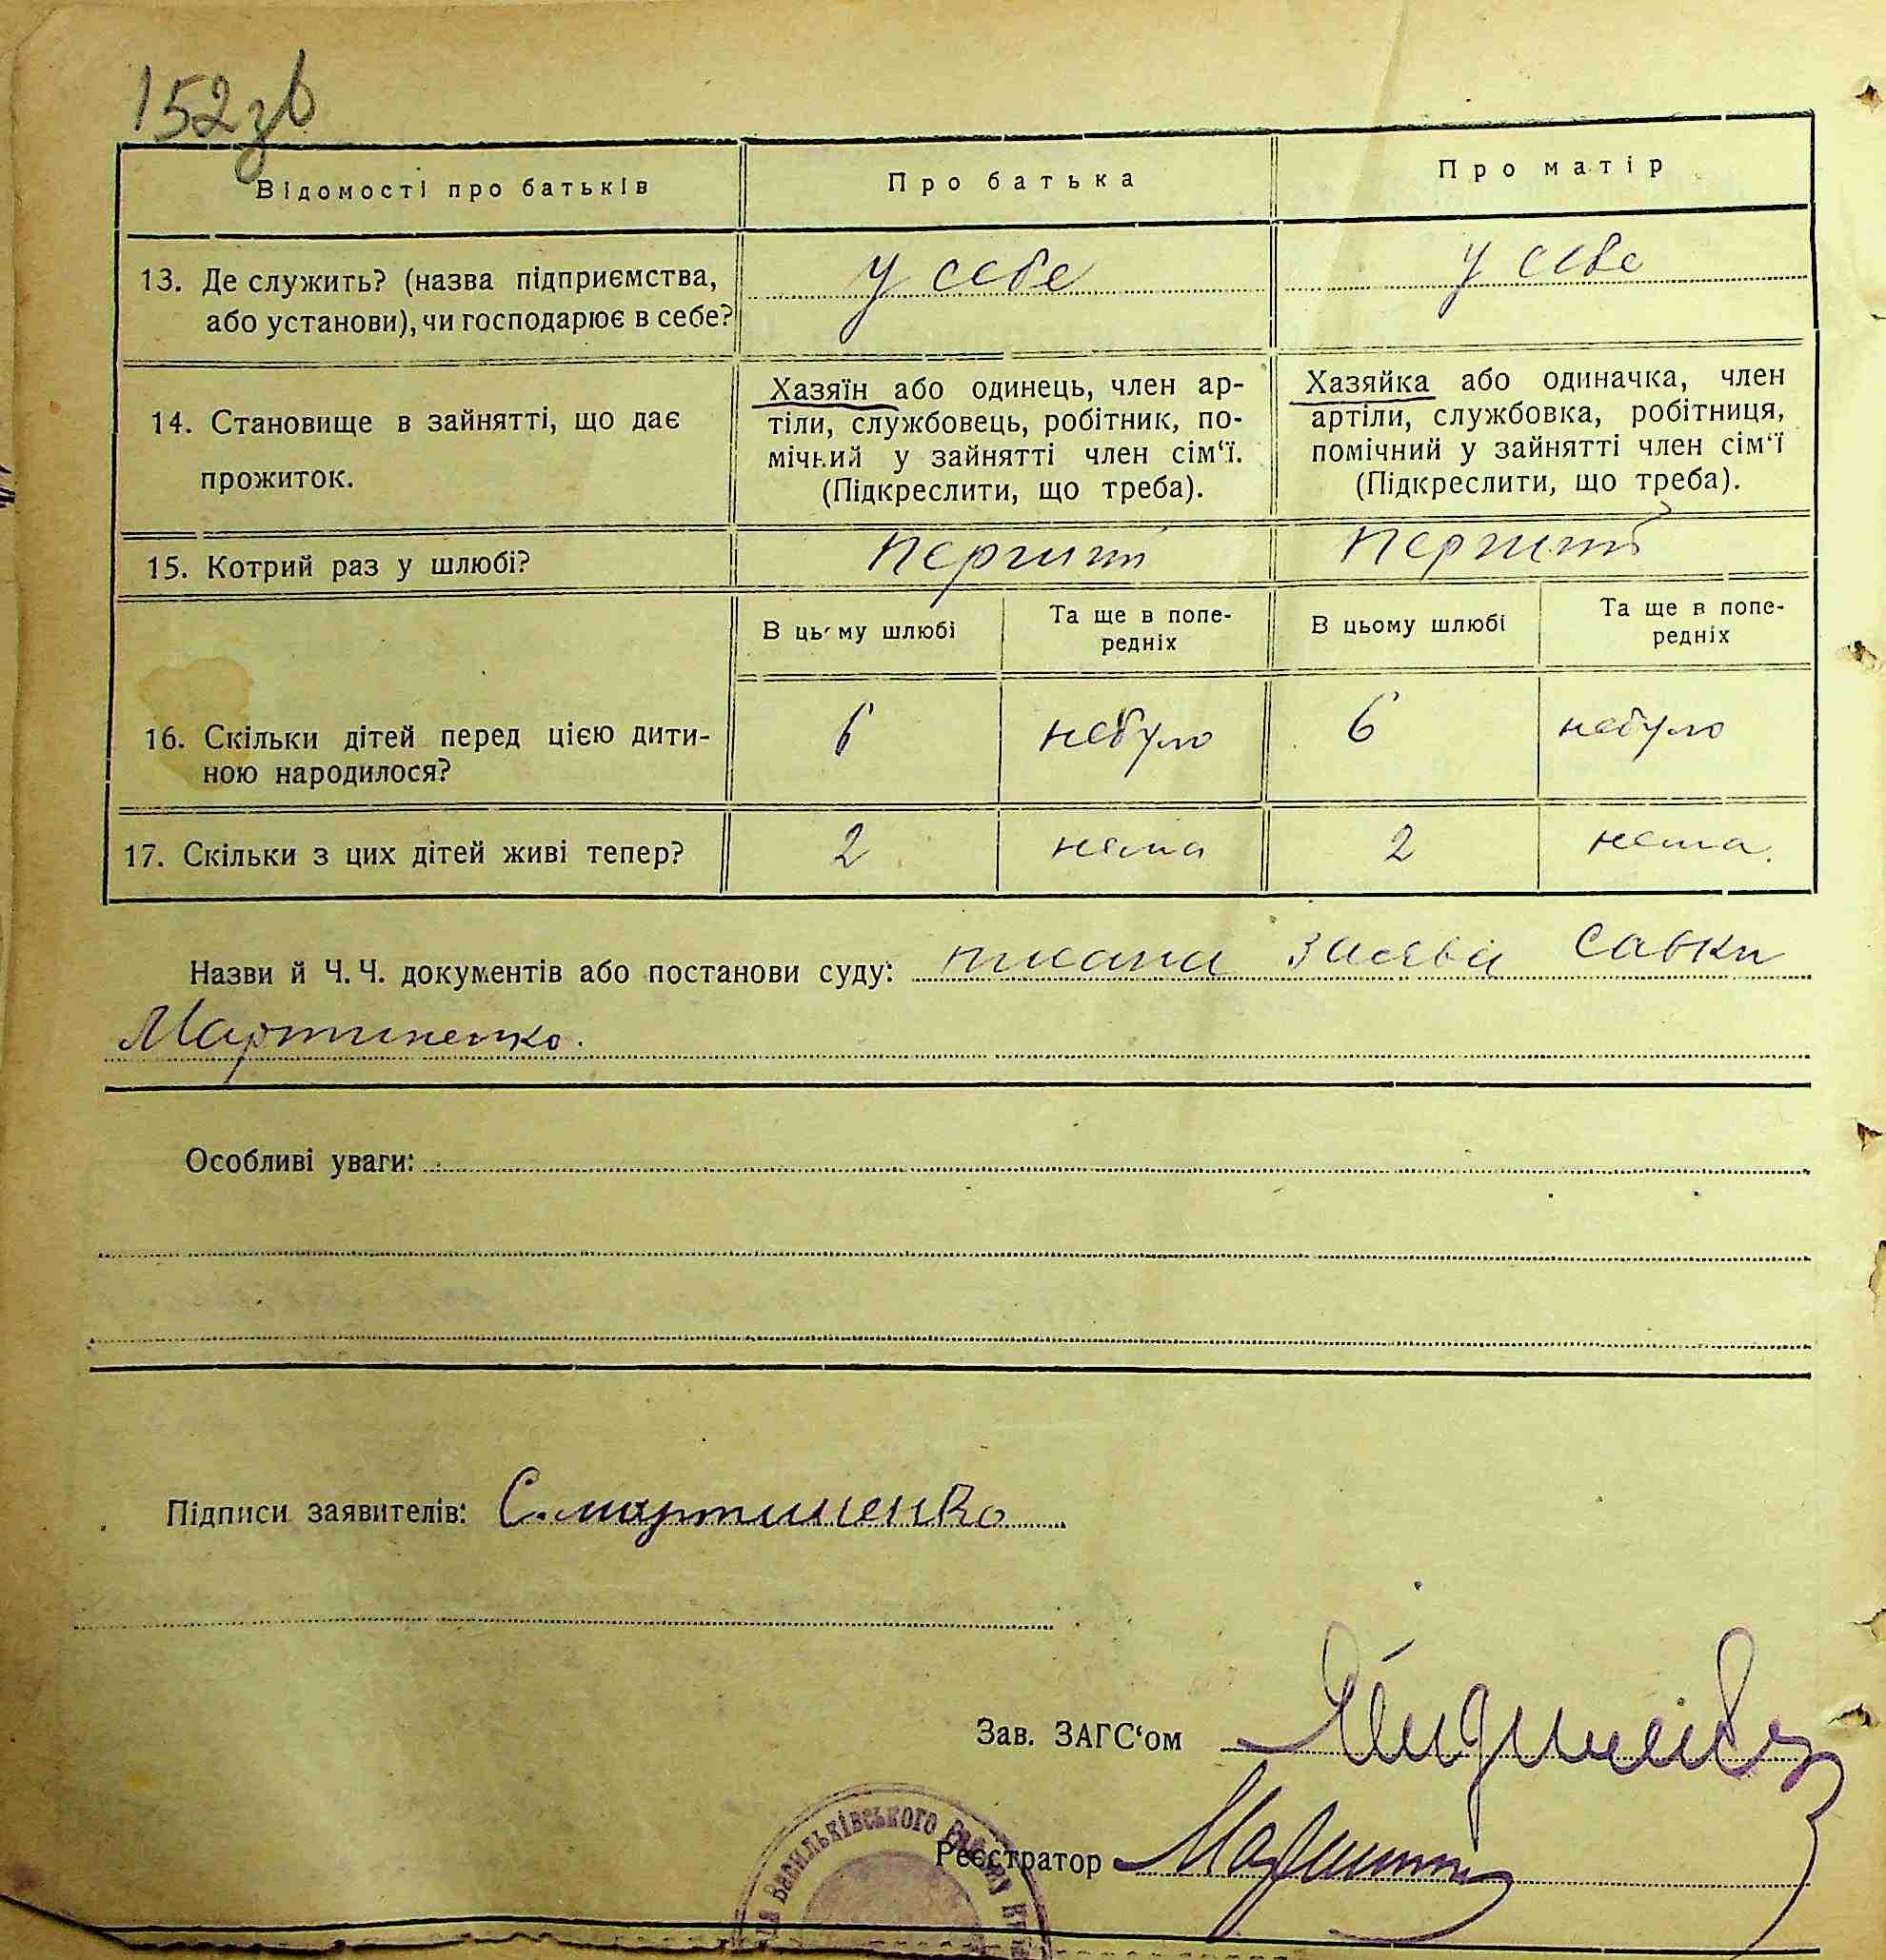 152 зв
Відомості про батьків
Про батька
Про матір
13. Де служить? (назва підприємства,
або установи), чи господарює в себе?
у себе
у себе
14. Становище в зайнятті, що дає
прожиток.
Хазяїн або одинець, член ар-
тіли, службовець, робітник, по-
мічний у зайнятті член сім‘ї.
(Підкреслити, що треба).
Хазяйка або одиначка, член
артіли, службовка, робітниця,
помічний у зайнятті член сім‘ї
(Підкреслити, що треба).
15. Котрий раз у шлюбі?
Перший
Перший
В цьму шлюбі
Та ще в попе-
редніх
В цьому шлюбі
Та ще в попе-
редніх
16. Скільки дітей перед цією дити-
ною народилося?
6
небуло
6
небуло
17. Скільки з цих дітей живі тепер?
2
нема
2
нема.
Назви й Ч. Ч. документів або постанови суду: заява Савки
Мартиненко.
Особливі уваги:
Підписи заявителів: С. мартиненко
Зав. ЗАГС‘ом
Реєстратор
Васильківського району